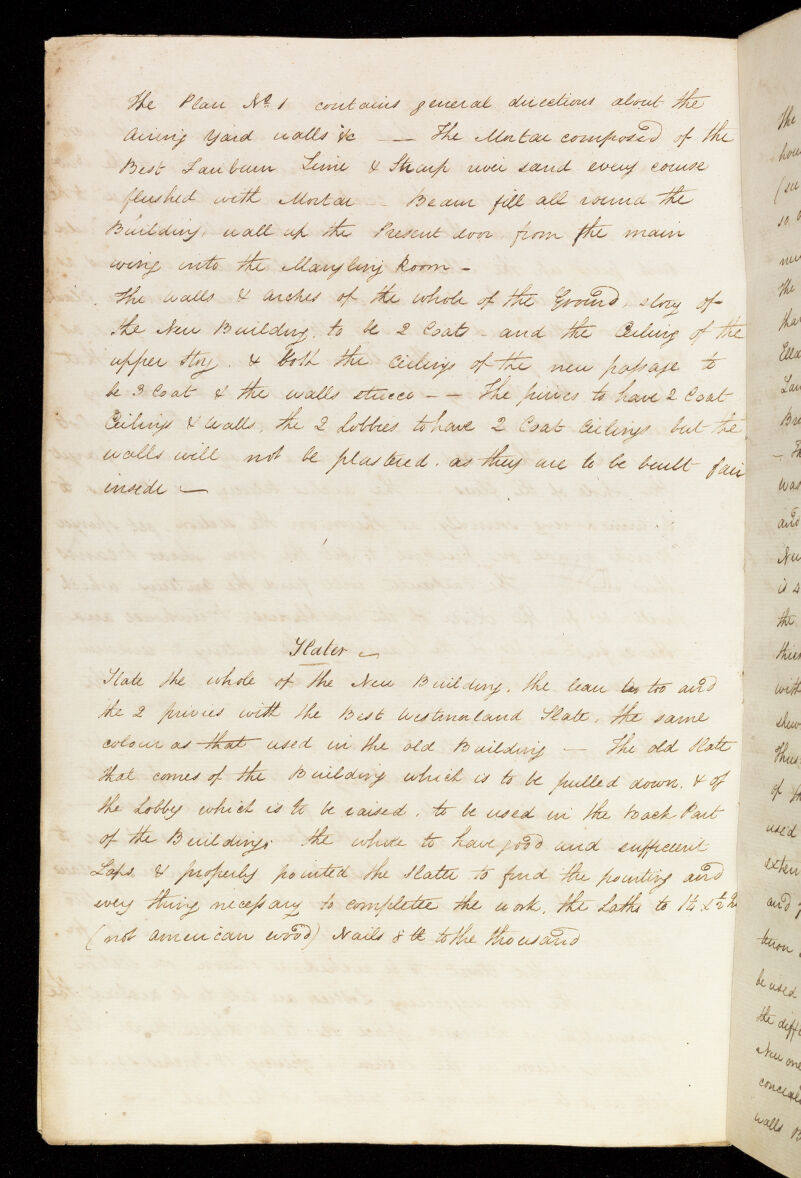 The Plan No. 1 contains general directions about the
Airing Yard walls &c — The Mortar composed of the
Best Fairburn Lime & Sharp river sand every course
flushed with Mortar - Beam fill all round the
Building, wall up the Present door from the main
wing into the Mangling Room -
The walls & arches of the whole of the Ground story of
the New Building. to be 2 Coats - and the Ceiling of the
upper story. & both the Ceilings of the new passage to
be 3 Coat & the walls stucco - - The privies to have 2 Coat
Ceilings & walls, the 2 Lobbies to have 2 Coat Ceilings but the
walls will not be plastered. as they are to be built fair
inside —
Slater
Slate the whole of the New Building. the lean tos too and
the 2 privies with the Best Westmorland Slate, the same
colour as that used in the old Building — The old Slate
that comes of the Building which is to be pulled down. & of
the Lobby which is to be raised. to be used in the Back Part
of the Building. the whole to have good and sufficient
Laps & properly pointed the Slatter to find the pointing and
every thing necessary to complette the work, the Laths to 1¼ x ½
(not american wood) Nails 8 lb to the thousand
The
so
The
that
was
and
is 4
the
with
Thus
of
used
and
be used
the
New one
walls